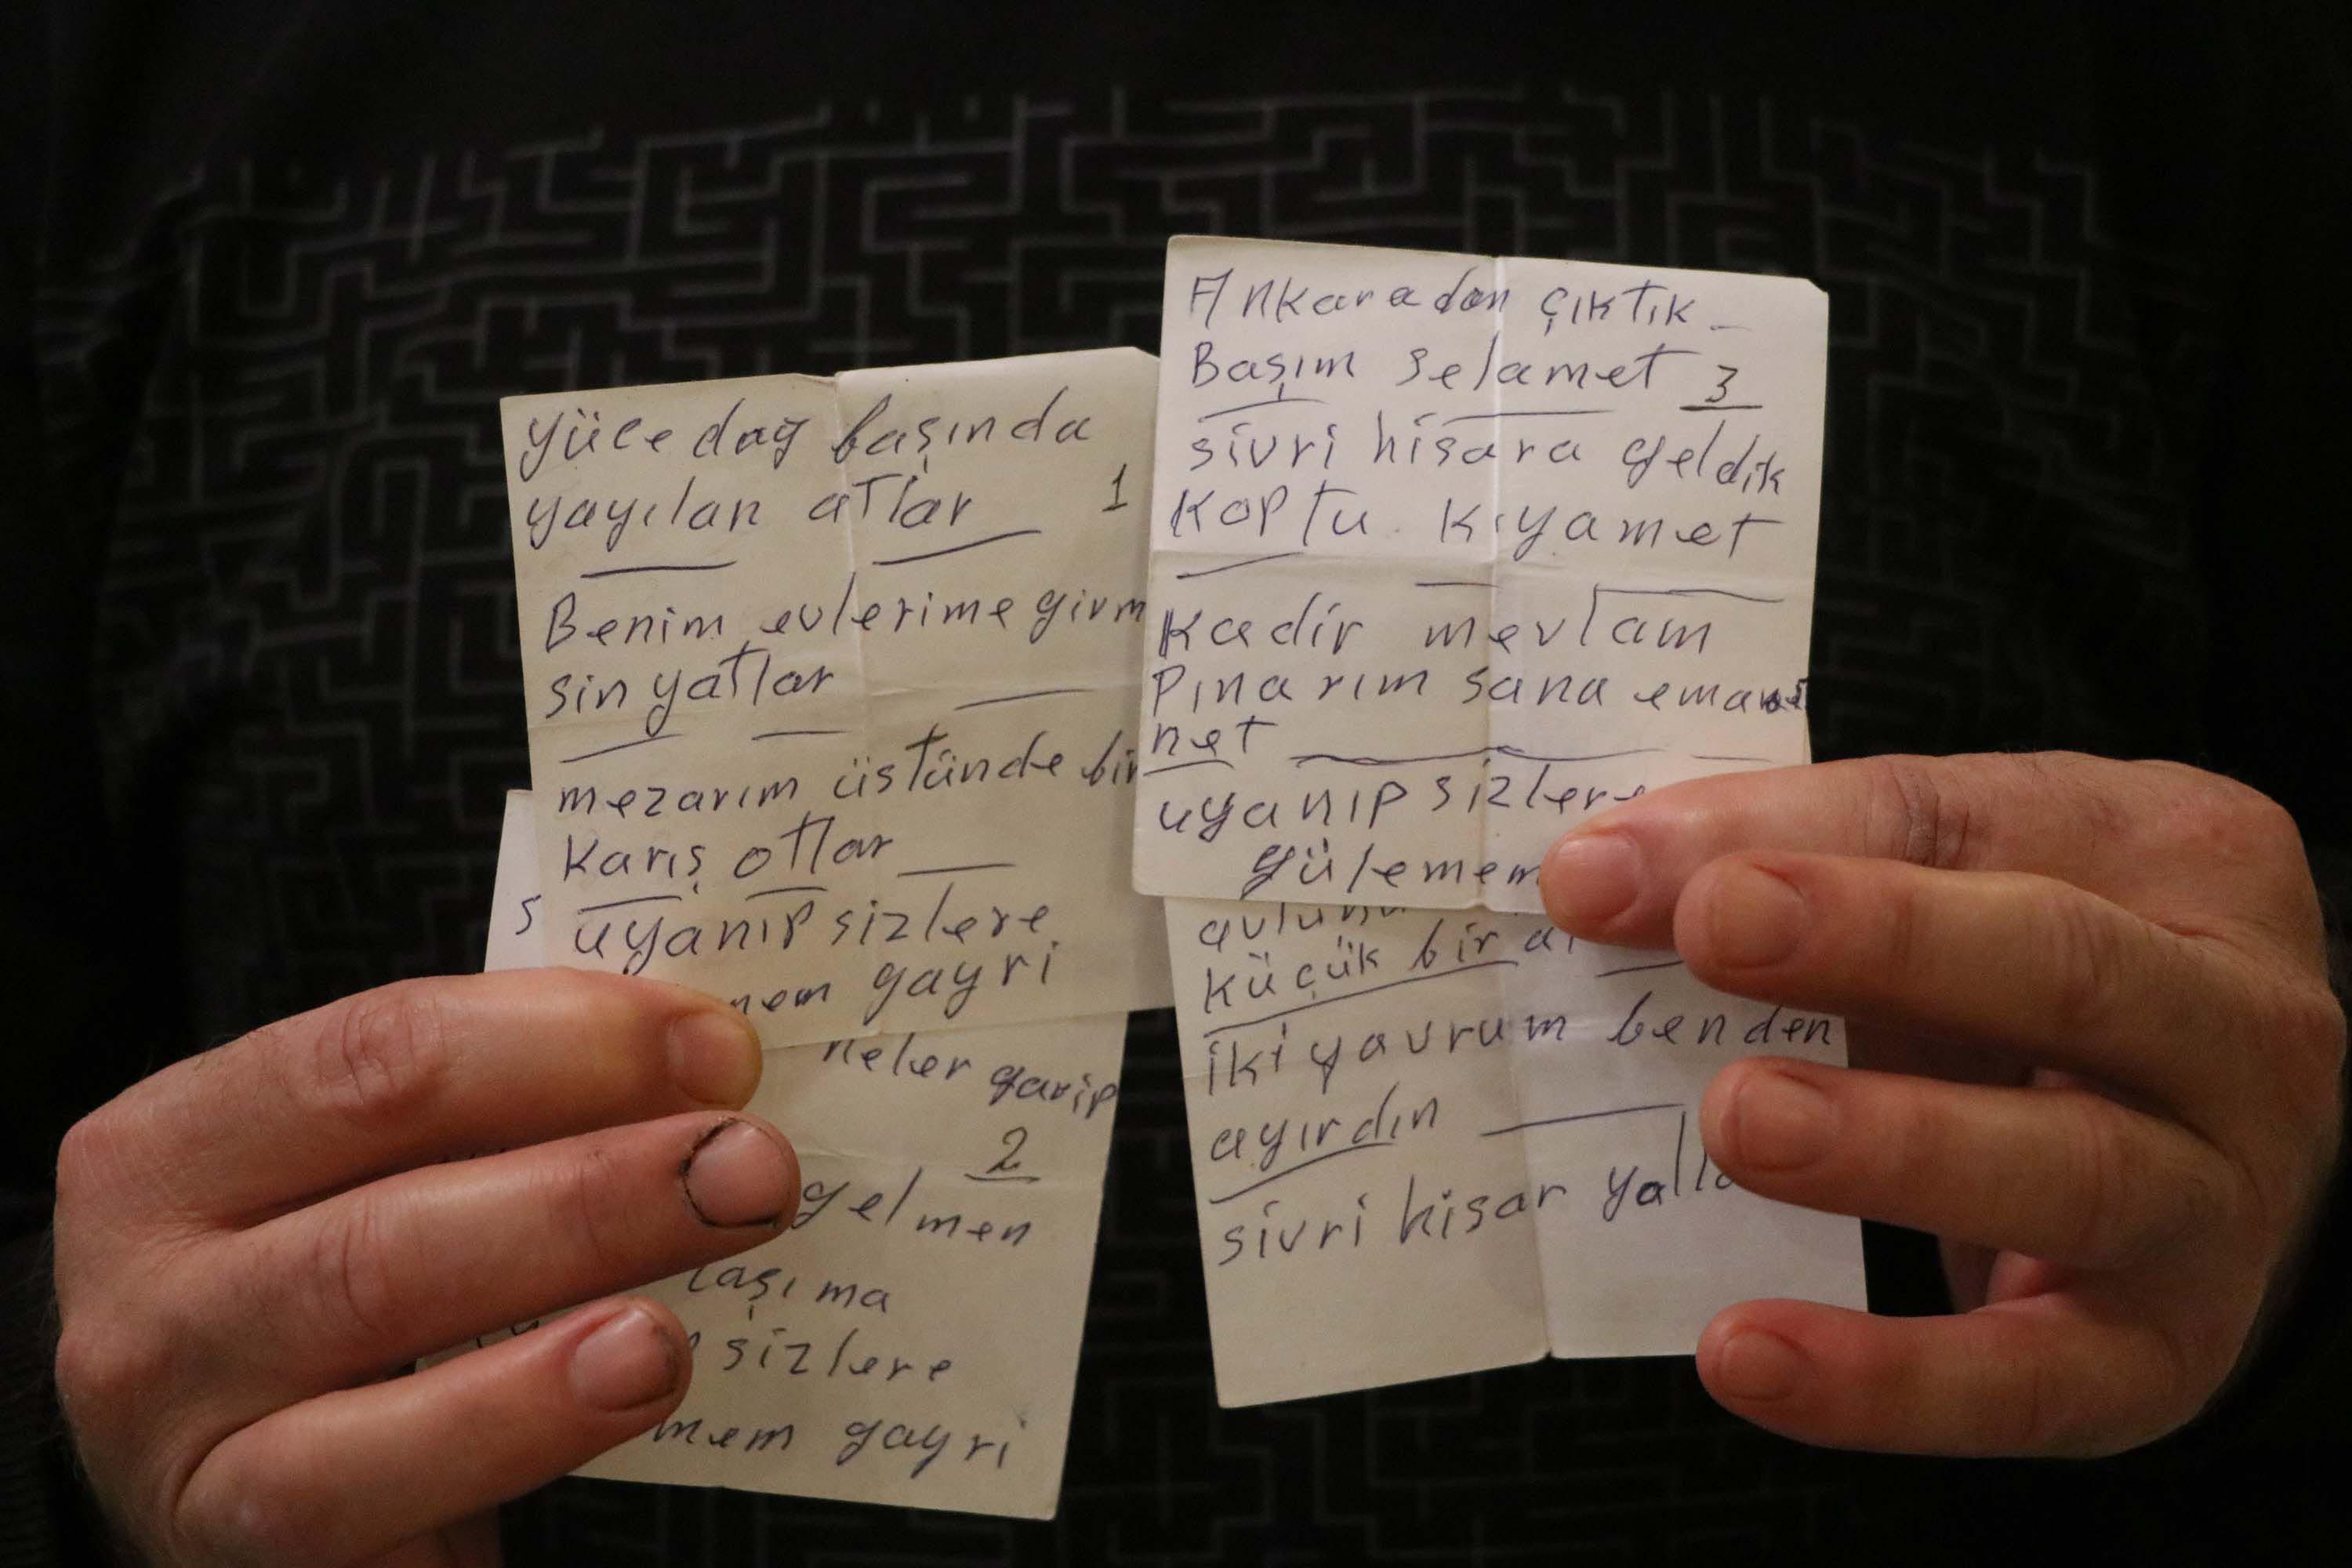 yüce dağ başında
yayılan atlar 1
Benim evlerime girm
sin yatlar
mezarım üstünde bir
Karış otlar
uyanıp sizlere
gayri
neler garip
2
gelmen
sizlere
gayri
Ankaradan çıktık
Başım selamet 3
sivri hisara geldik
Koptu kıyamet
Kadir mevlam
Pınarım sana emanet
net
uyanıp sizlere
gülemem
küçük bir
iki yavrum benden
ayırdın
sivri hisar